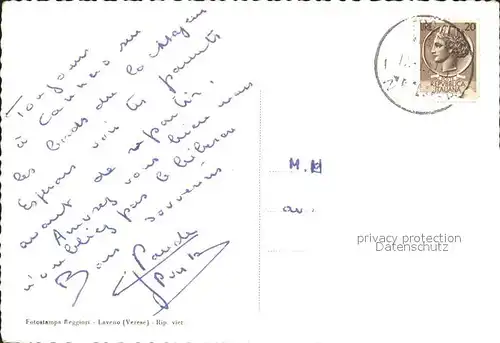 Toujours
à Cannero sur
les bords du lac Majeur
Espérons voir tes parents
avant de repartir.
Amusez vous bien mais
n'oubliez pas le
Bons souvenirs
M.
av.
REPUBBLICA
ITALIANA
20
privacy protection
Datenschutz
Fotostampa Reggiori - Laveno (Varese) - Rip. viet.